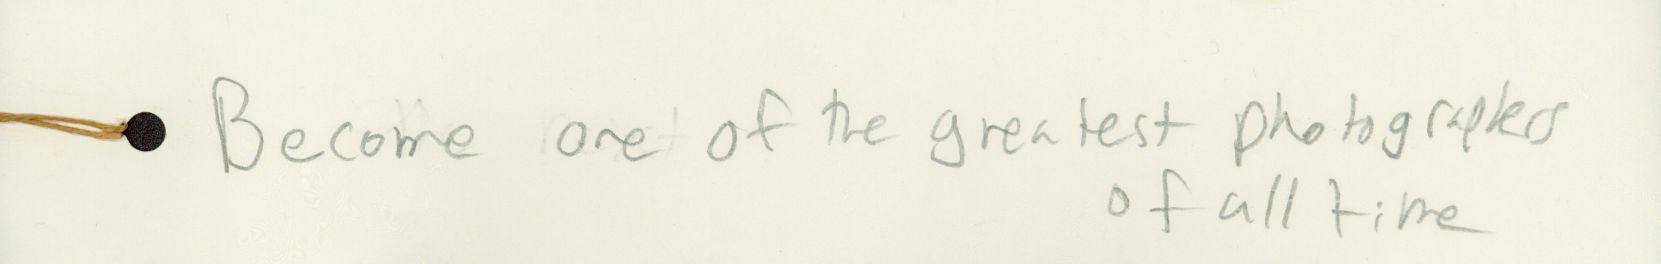 Become one of the greatest photographers
of all time